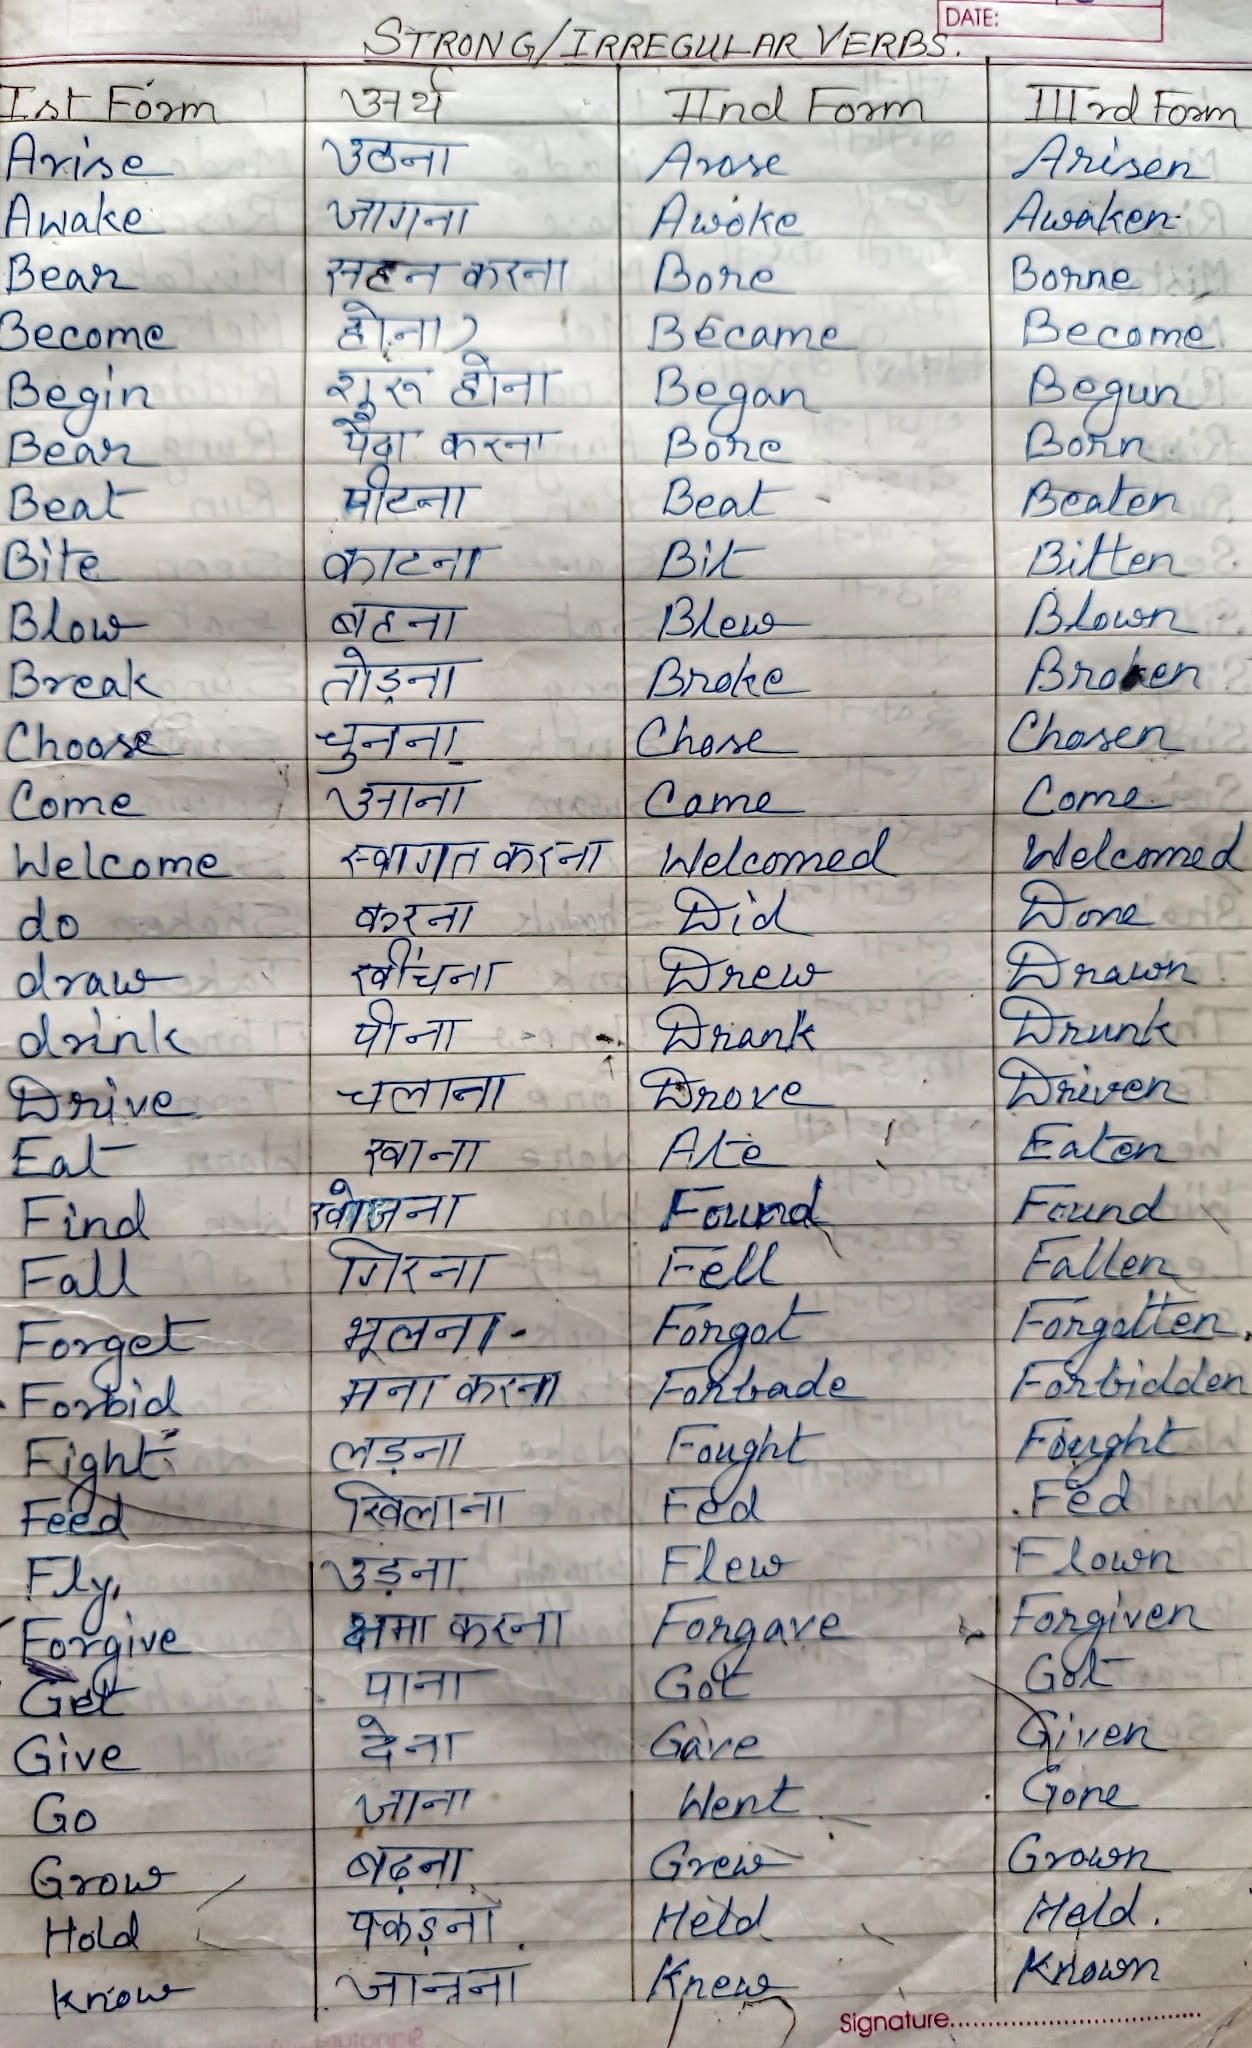 DATE:
STRONG/IRREGULAR VERBS.
Ist Form अर्थ IInd Form IIIrd Form
Arise उठना Arose Arisen
Awake जागना Awoke Awaken
Bear सहन करना Bore Borne
Become होना Became Become
Begin शुरू होना Began Begun
Bear पैदा करना Bore Born
Beat पीटना Beat Beaten
Bite काटना Bit Bitten
Blow बहना Blew Blown
Break तोड़ना Broke Broken
Choose चुनना Chose Chosen
Come आना Came Come
Welcome स्वागत करना Welcomed Welcomed
do करना Did Done
draw खींचना Drew Drawn
drink पीना Drank Drunk
Drive चलाना Drove Driven
Eat खाना Ate Eaten
Find खोजना Found Found
Fall गिरना Fell Fallen
Forget भूलना Forgot Forgotten
Forbid मना करना Forbade Forbidden
Fight लड़ना Fought Fought
Feed खिलाना Fed Fed
Fly उड़ना Flew Flown
Forgive क्षमा करना Forgave Forgiven
Get पाना Got Got
Give देना Gave Given
Go जाना Went Gone
Grow बढ़ना Grew Grown
Hold पकड़ना Held Held.
know जानना Knew Known
Signature